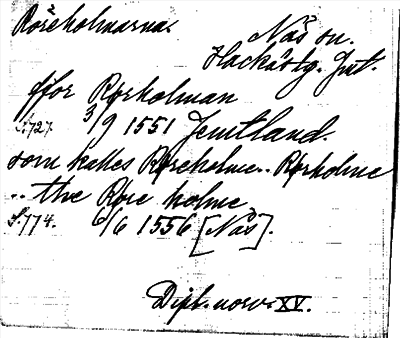 Röreholmarna.
Näs sn.
Hackås tg. Jmt.
ffor Rørholman
S. 727. 3/9 1551 Jemtland.
som kalles Røreholme.. Rørholme
.. the Røre holme
S. 774. 6/6 1556 [Näs].
Dipl. norv. XV.